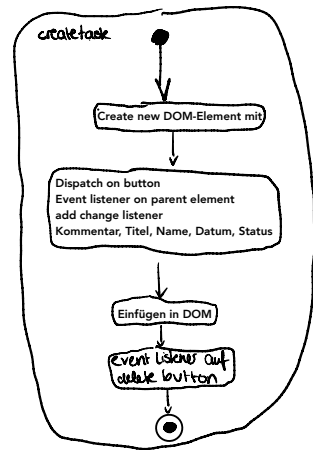 createtask
Create new DOM-Element mit
Dispatch on button
Event listener on parent element
add change listener
Kommentar, Titel, Name, Datum, Status
Einfügen in DOM
Event Listener auf
delete button